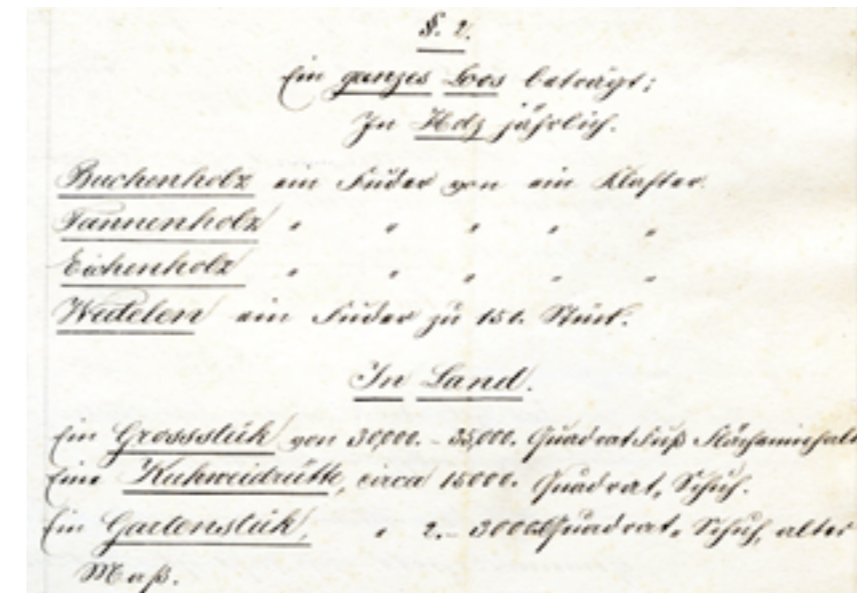 §. 2.
Ein ganzes Loos beträgt:
In Holz jährlich.
Buchenholz ein Fuder von ein Klafter.
Tannenholz " " " " "
Eichenholz " " " " "
Wedelen ein Fuder zu 150. Stück.
In Land.
Ein Grossstük von 30,000. - 35,000. Quadrat Fuß Flächeninhalt
Eine Kuhweidrütte, circa 15000. Quadrat, Schuh.
Ein Gartenstük, " 2. - 3000 Quadrat, Schuh, altes
Maß.